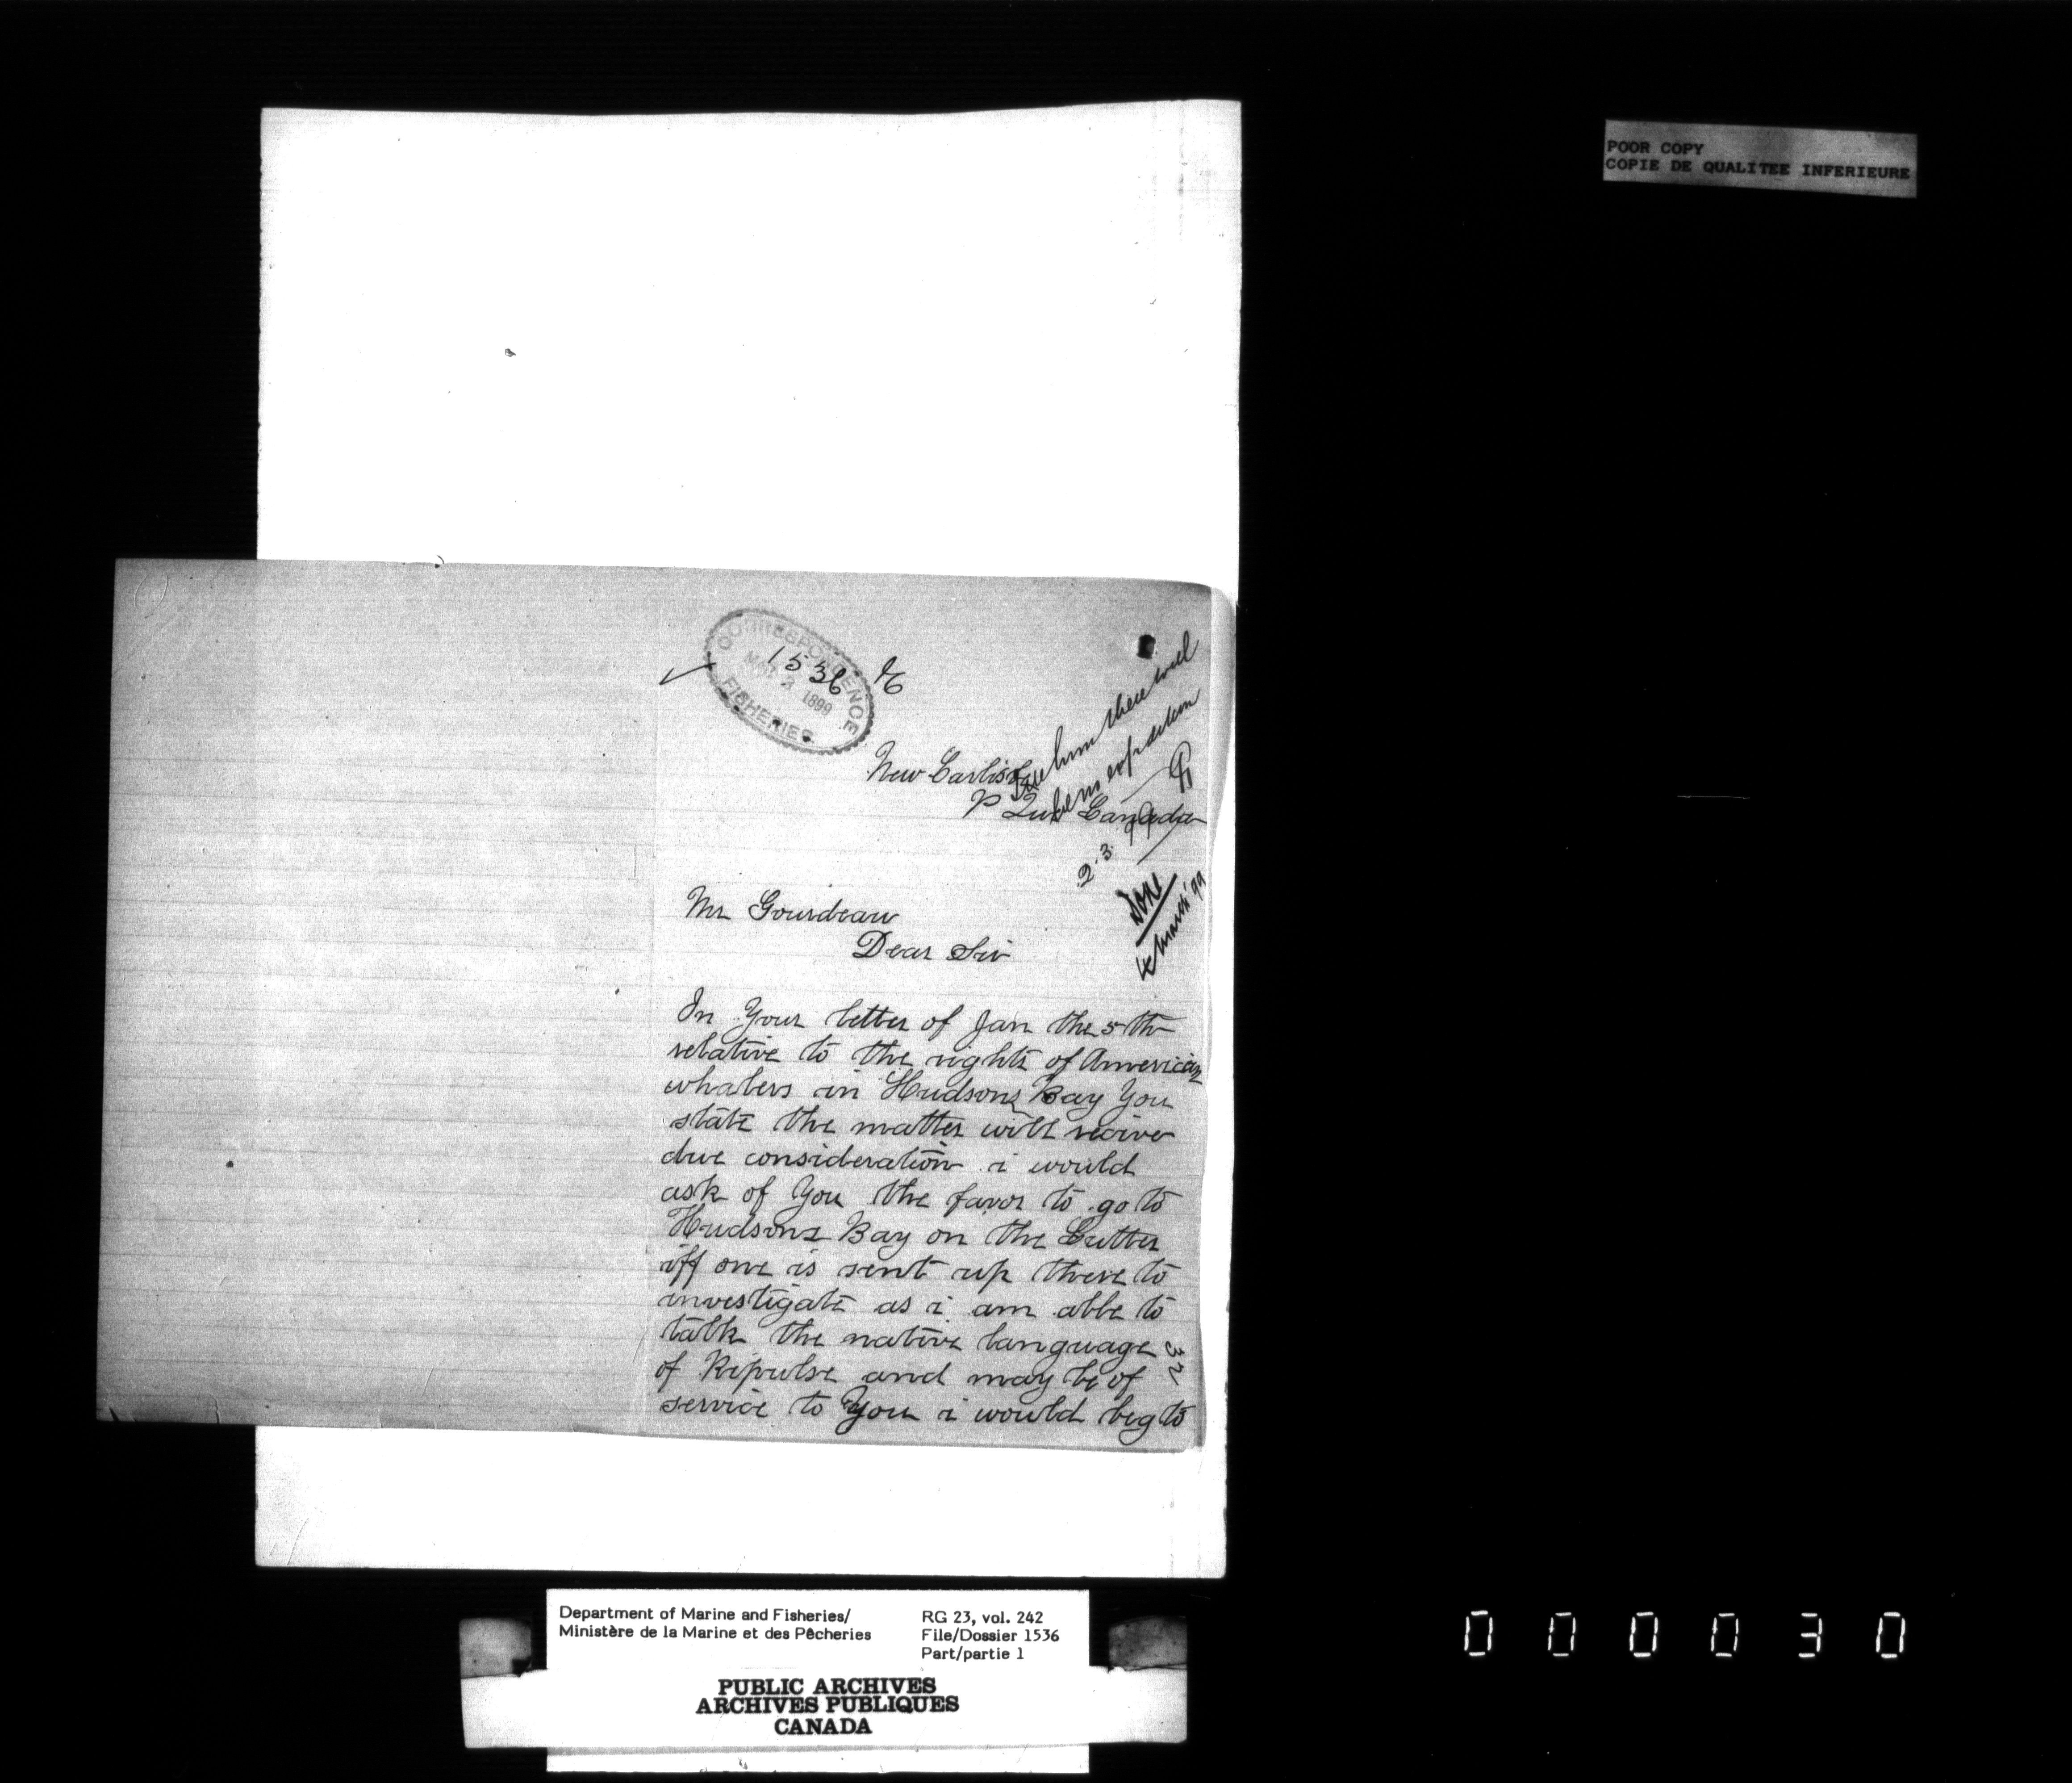 POOR COPY
COPIE DE QUALITEE INFERIEURE
CORRESPONDENCE
1536
MAR 2 1899
FISHERIES
Tell him there will
be no expedition
2.3.99
Done
4 March '99
New Carlisle
P Queb Canada
Mr Gourdeau
Dear Sir
In Your letter of Jan the 5th
relative to the rights of American
whalers in Hudsons Bay You
state the matter will recive
due consideration i would
ask of You the favor to go to
Hudsons Bay on the Cutter
iff one is sent up there to
investigate as i am able to
talk the native language
of Repulse and may be of
service to You i would beg to
32
Department of Marine and Fisheries/
Ministère de la Marine et des Pêcheries
RG 23, vol. 242
File/Dossier 1536
Part/partie 1
PUBLIC ARCHIVES
ARCHIVES PUBLIQUES
CANADA
000030